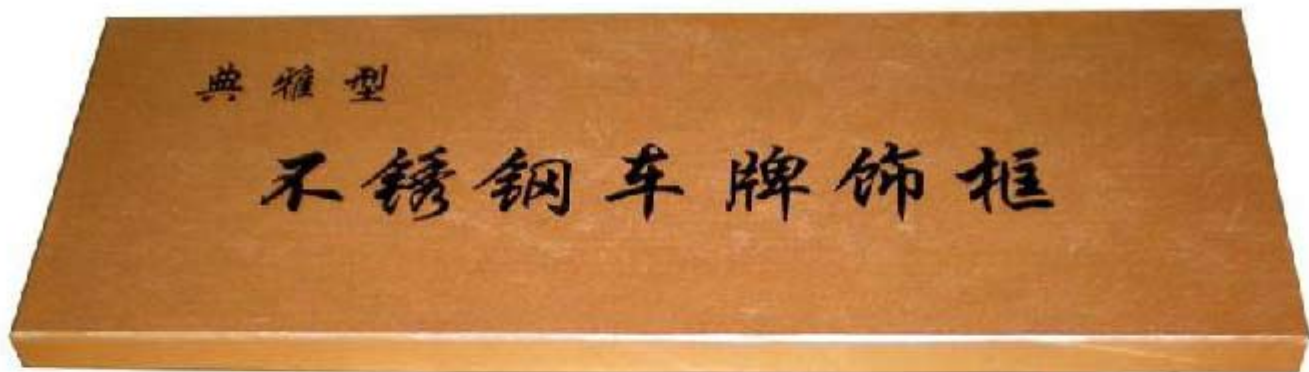 典雅型
不锈钢车牌饰框